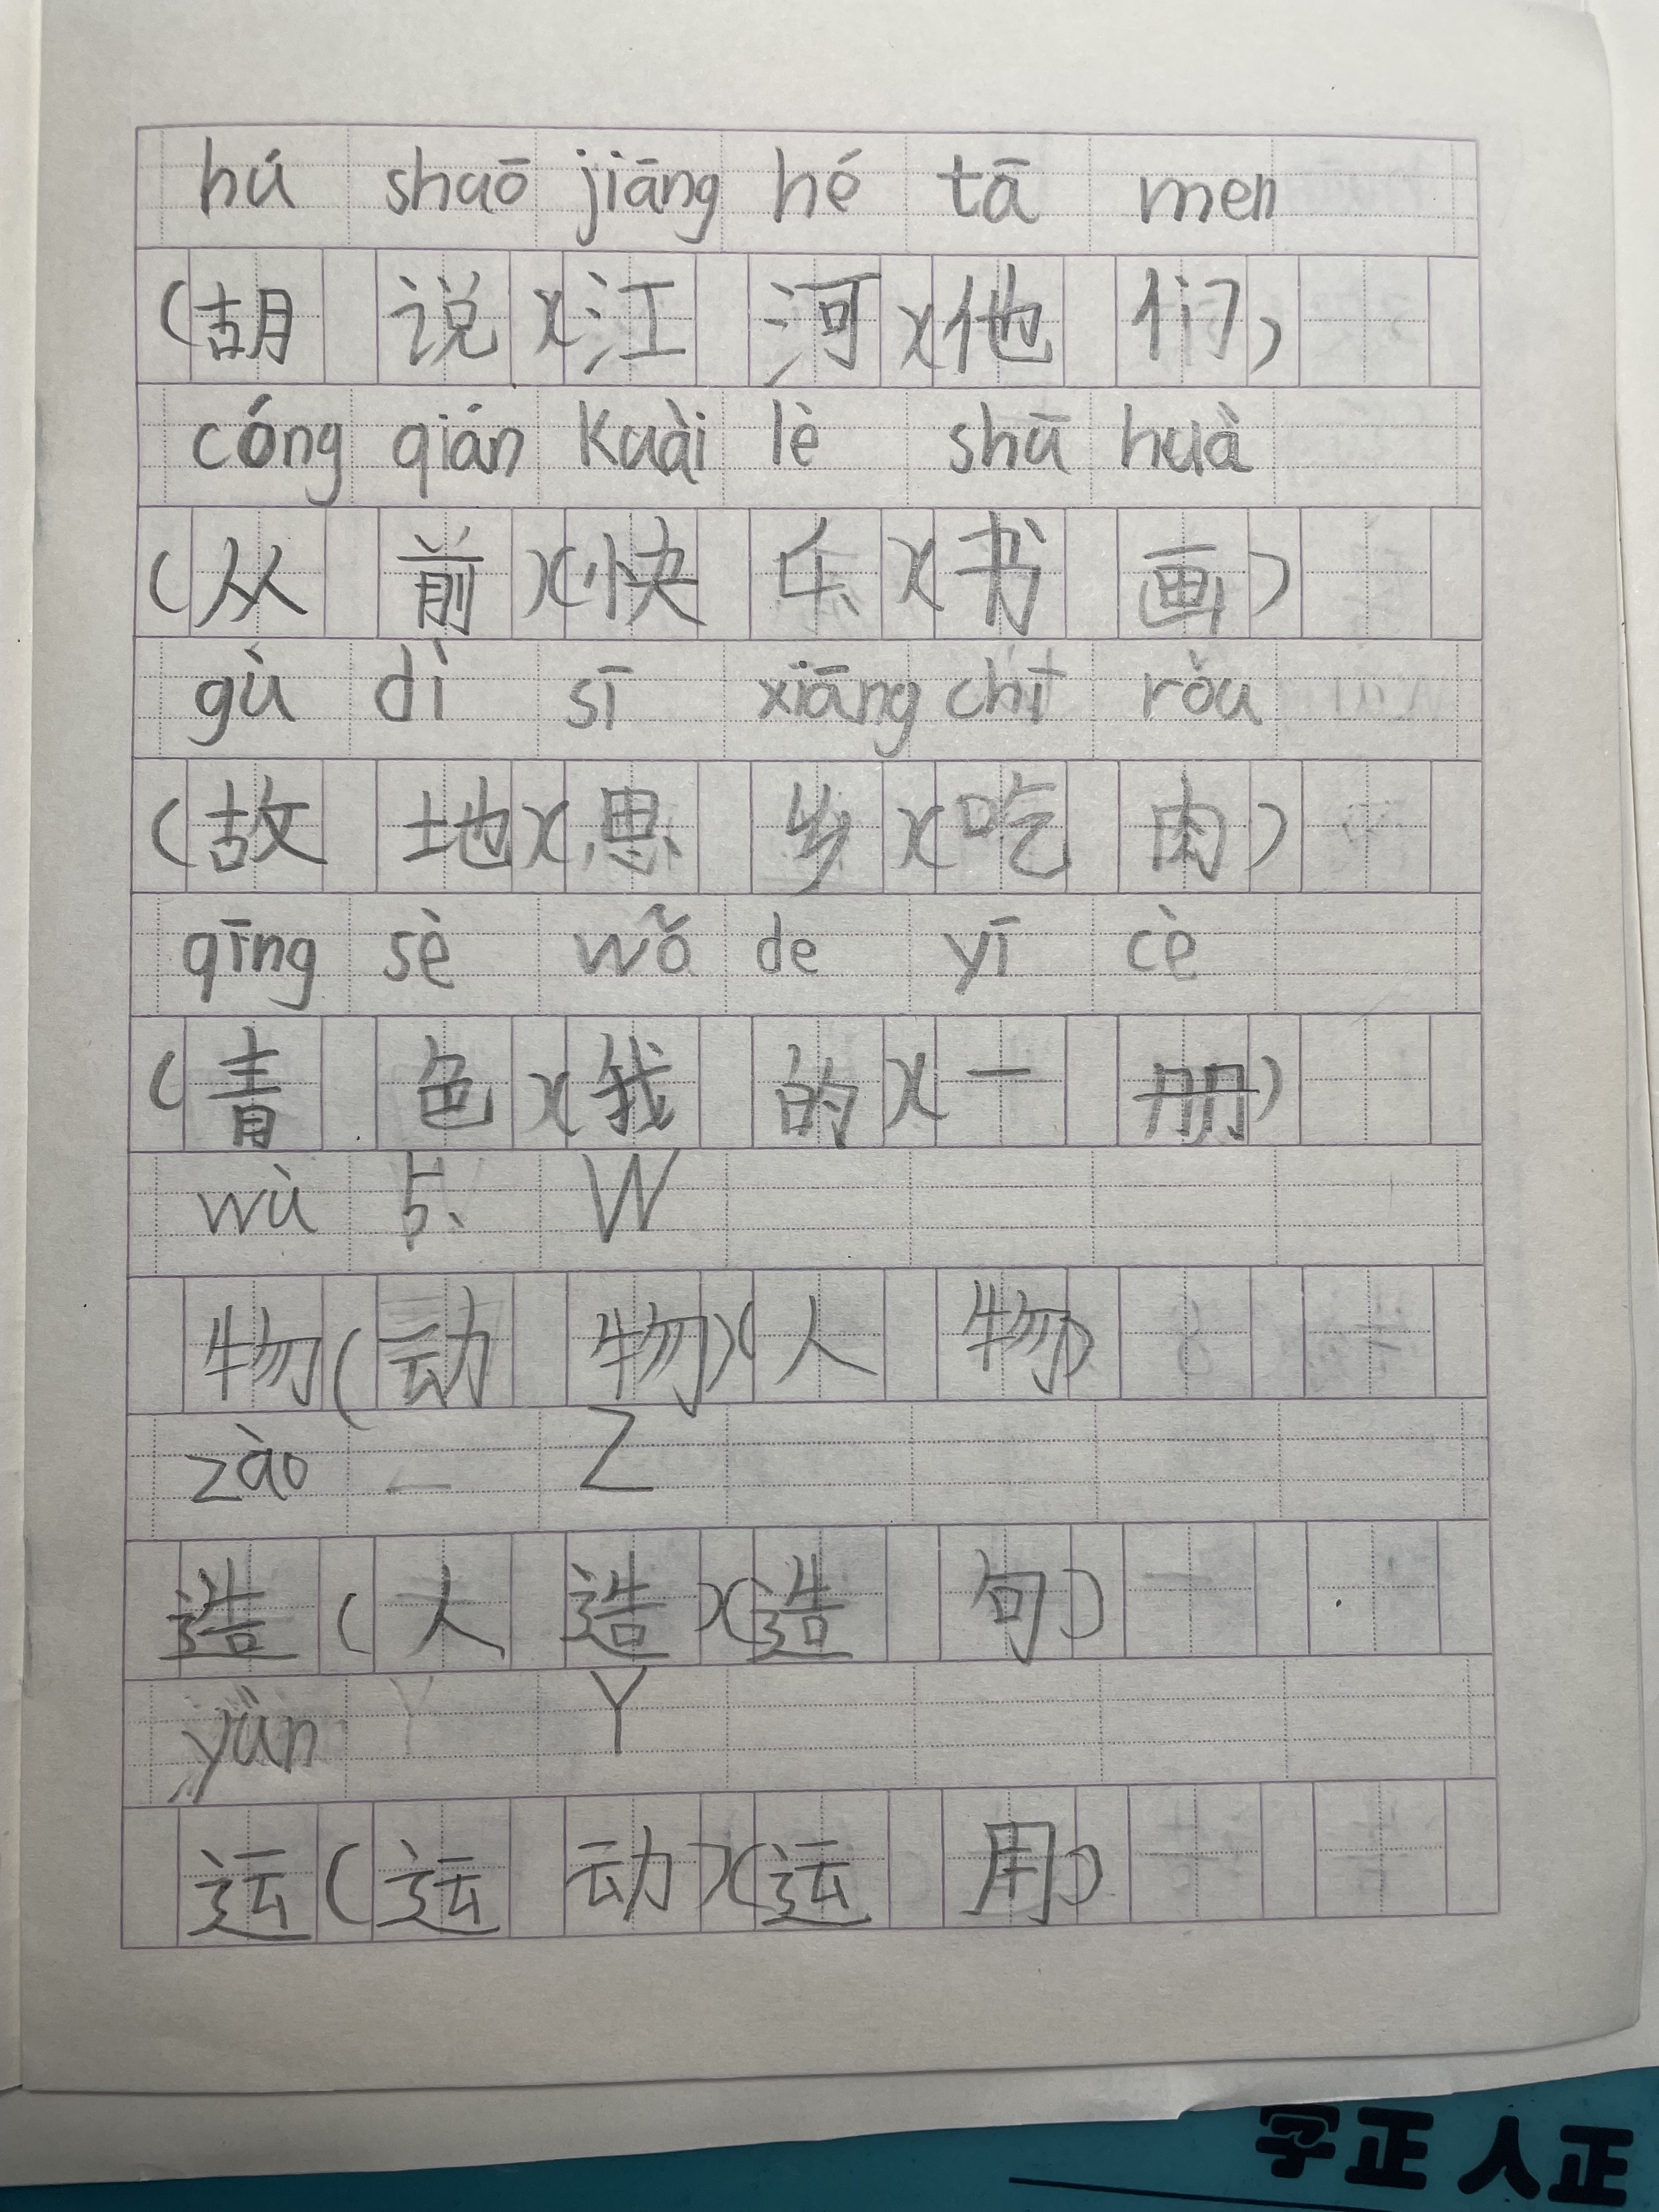 hú shuō jiāng hé tā men
(胡说)(江河)(他们)
cóng qián kuài lè shū huà
(从前)(快乐)(书画)
gù dì sī xiāng chī rǒu
(故地)(思乡)(吃肉)
qīng sè wǒ de yī cè
(青色)(我的)(一册)
wù W
物(动物)(人物)
zào 一 Z
造(人造)(造句)
yùn Y Y
运(运动)(运用)
字正人正